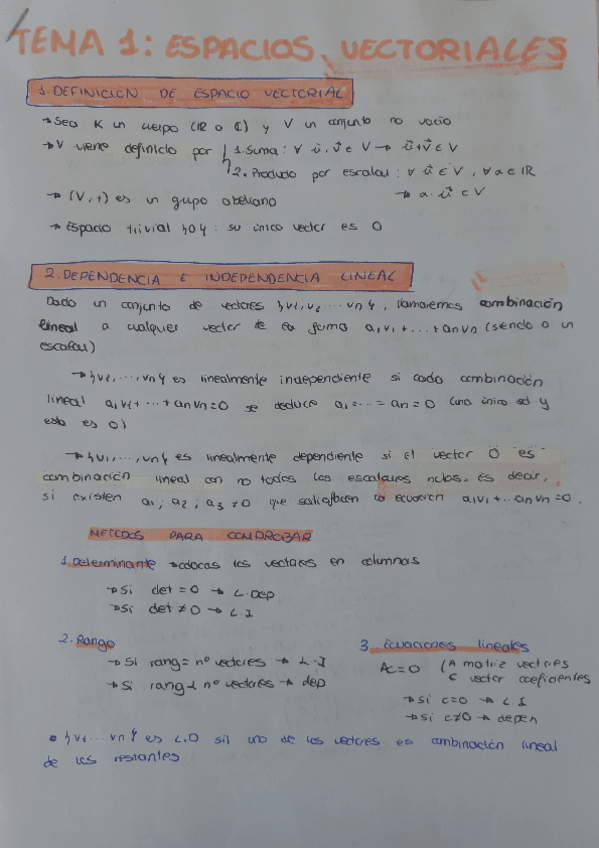 TEMA 1: ESPACIOS VECTORIALES
1. DEFINICIÓN DE ESPACIO VECTORIAL
→ Sea K un cuerpo (IR o ℂ) y V un conjunto no vacío
→ V viene definido por { 1. Suma: ∀ u⃗, v⃗ ∈ V → u⃗+v⃗ ∈ V
2. Producto por escalar: ∀ u⃗ ∈ V, ∀ a ∈ IR
→ a·u⃗ ∈ V
→ (V,+) es un grupo abeliano
→ Espacio trivial {0}: su único vector es 0
2. DEPENDENCIA E INDEPENDENCIA LINEAL
Dado un conjunto de vectores {v1, v2 ... vn}, llamaremos combinación
lineal a cualquier vector de la forma a1v1 + ... + anvn (siendo a un
escalar)
→ {v1, ..., vn} es linealmente independiente si cada combinación
lineal a1v1 + ... + anvn = 0 se deduce a1 = ... = an = 0 (una única sol y
esta es 0)
→ {v1, ..., vn} es linealmente dependiente si el vector 0 es
combinación lineal con no todos los escalares nulos, es decir,
si existen a1; a2; a3 ≠ 0 que satisfacen la ecuación a1v1 + ... anvn = 0.
METODOS PARA COMPROBAR
1. Determinante → colocas los vectores en columnas
→ Si det = 0 → L. Dep
→ Si det ≠ 0 → L. I
2. Rango
→ Si rang = nº vectores → L. I
→ Si rang < nº vectores → dep
3. Ecuaciones lineales
Ac = 0 (A matriz vectores
c vector coeficientes
→ Si c = 0 → L. I
→ Si c ≠ 0 → depen
• {v1 ... vn} es L.D sii uno de los vectores es combinación lineal
de los restantes